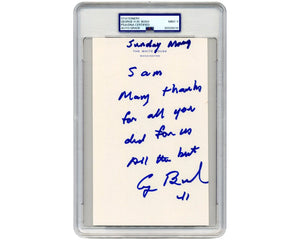 STATIONERY
GEORGE H.W. BUSH
PSA/DNA CERTIFIED
MINT 9
Sunday Morng
THE WHITE HOUSE
WASHINGTON
Sam
Many thanks
for all you
did for us
All the best
G Bush
41